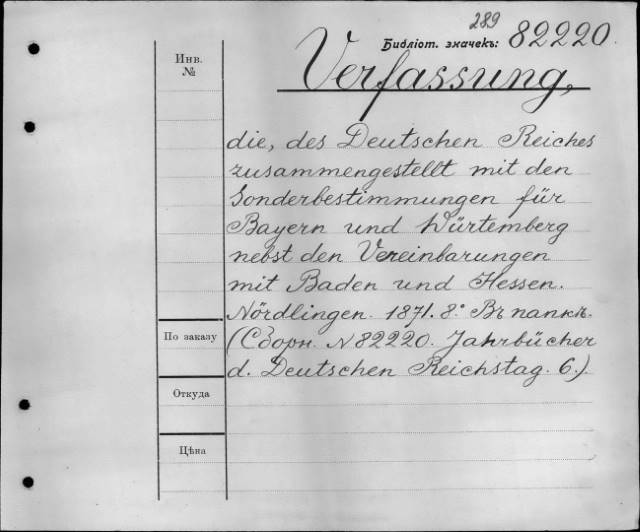 289
Библіот. значекъ: 82220.
Инв.
№
Verfassung,
die, des Deutschen Reiches
zusammengestellt mit den
Sonderbestimmungen für
Bayern und Würtemberg
nebst den Vereinbarungen
mit Baden und Hessen.
Nördlingen. 1871. 8.° Въ папкѣ.
По заказу
(Сборн. N 82220. Jahrbücher
d. Deutschen Reichstag. 6.)
Откуда
Цѣна